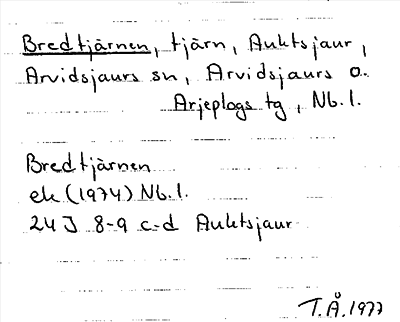 Bredtjärnen, tjärn, Auktsjaur,
Arvidsjaurs sn, Arvidsjaurs o.
Arjeplogs tg, Nb.l.
Bredtjärnen
ek (1974) Nb.l.
24J 8-9 c-d Auktsjaur
T.Å.1977